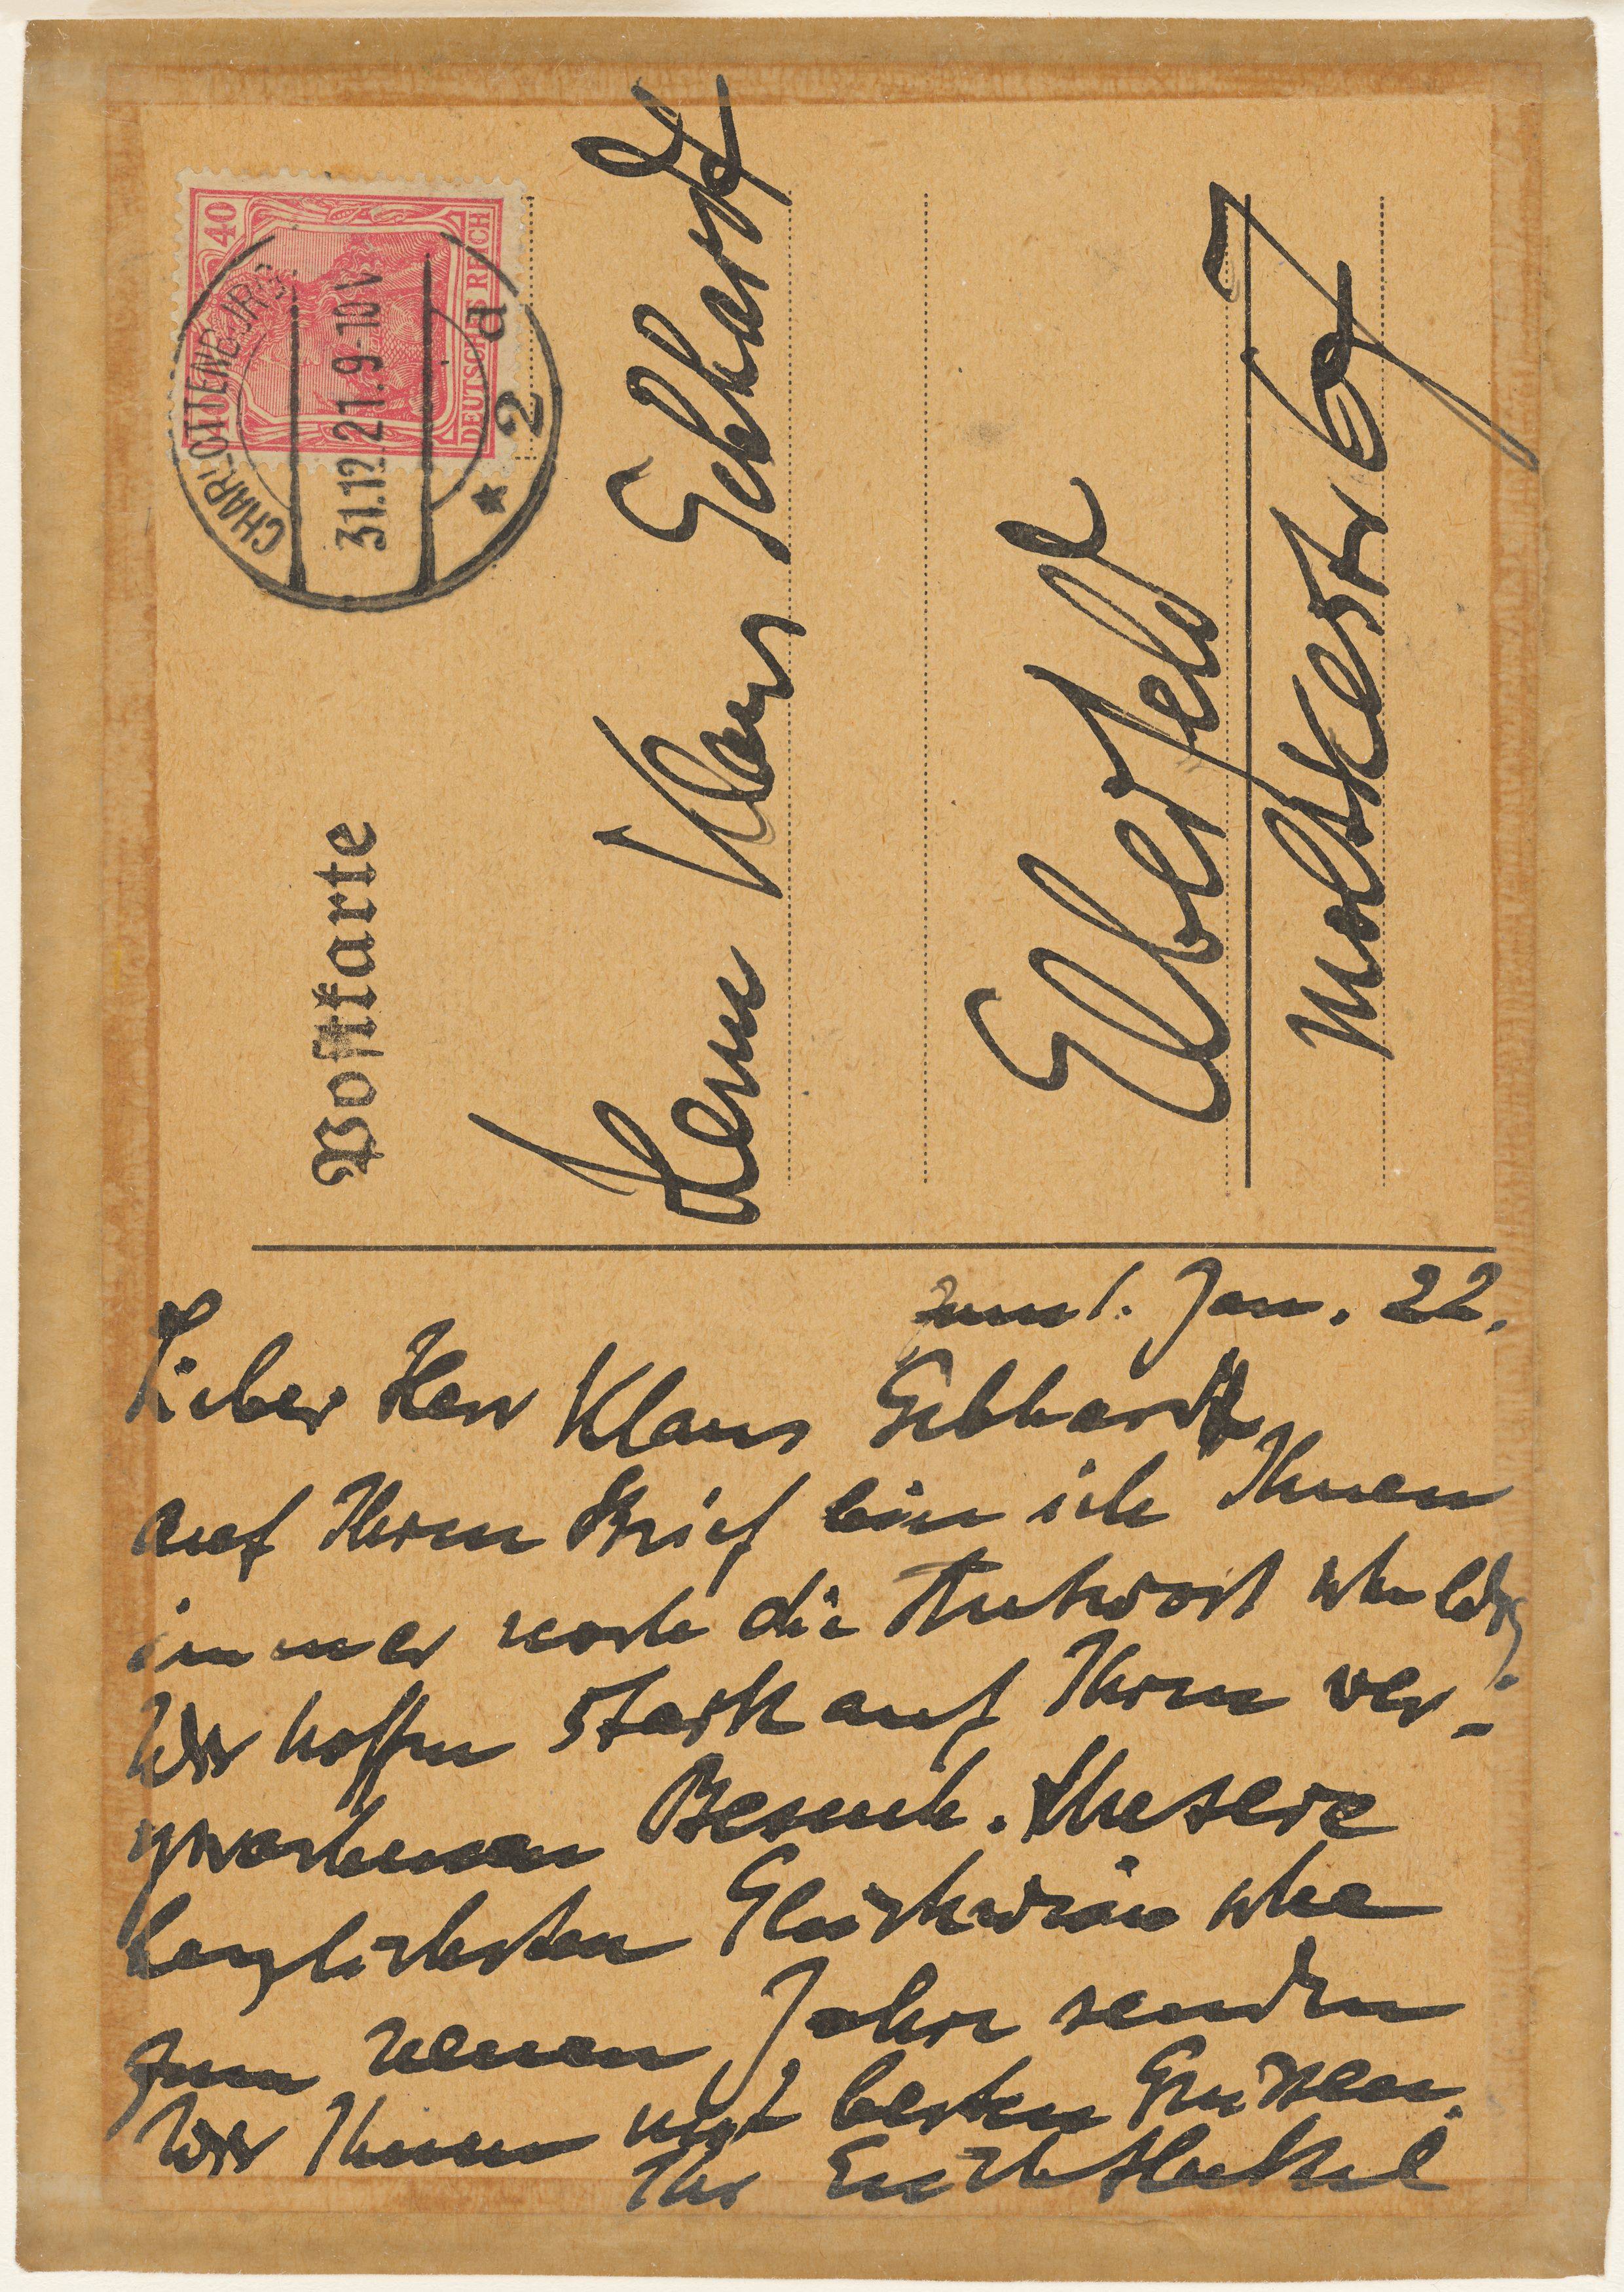 Postkarte
40
DEUTSCHES REICH
CHARLOTTENBURG
31.12.21.9-10V
* 2 a
Herrn Klaus Gebhardt
Elberfeld
Moltkestr 67
zum 1. Jan. 22.
Lieber Herr Klaus Gebhardt,
auf Ihren Brief bin ich Ihnen
immer noch die Antwort schuldig.
Wir hoffen stark auf Ihren ver-
sprochenen Besuch. Unsere
herzlichsten Glückwünsche
zum neuen Jahre senden
wir Ihnen mit besten Grüssen.
Ihr Erich Heckel